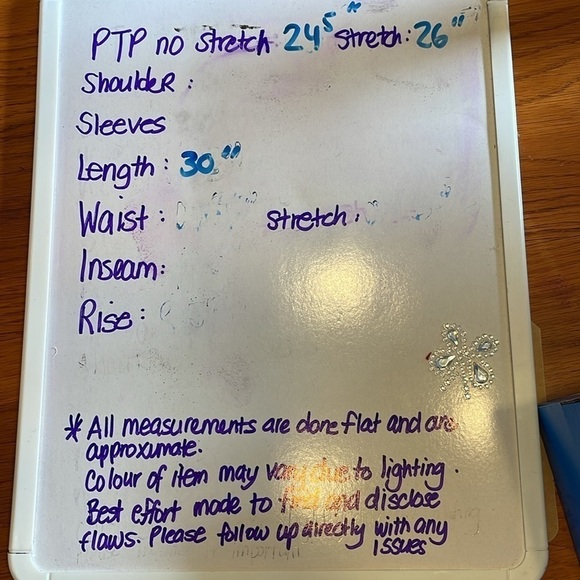 PTP no stretch 24⁵" stretch: 26"
Shoulder :
Sleeves
Length : 30"
Waist : stretch :
Inseam:
Rise :
* All measurements are done flat and are
approximate.
Colour of item may vary due to lighting.
Best effort made to find and disclose
flaws. Please follow up directly with any
issues